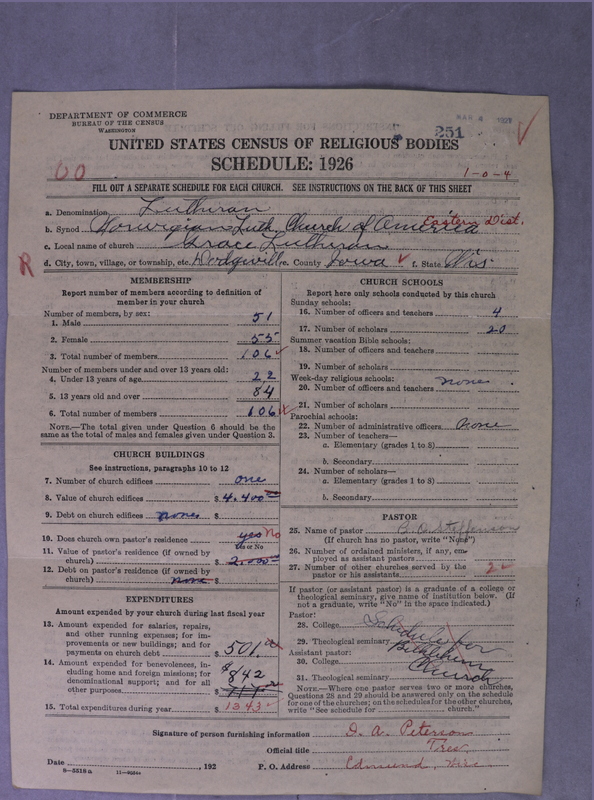 DEPARTMENT OF COMMERCE
BUREAU OF THE CENSUS
WASHINGTON
251
UNITED STATES CENSUS OF RELIGIOUS BODIES
SCHEDULE: 1926
1-0-4
FILL OUT A SEPARATE SCHEDULE FOR EACH CHURCH. SEE INSTRUCTIONS ON THE BACK OF THIS SHEET
a. Denomination Lutheran
b. Synod Norwegian Luth. Church of America Eastern Dist.
c. Local name of church Grace Lutheran
d. City, town, village, or township, etc. Dodgeville e. County Iowa f. State Wis
R
MEMBERSHIP
Report number of members according to definition of member in your church
Number of members, by sex:
1. Male 51
2. Female 55
3. Total number of members 106
Number of members under and over 13 years old:
4. Under 13 years of age 22
5. 13 years old and over 84
6. Total number of members 106
NOTE.—The total given under Question 6 should be
the same as the total of males and females given under Question 3.
CHURCH BUILDINGS
See instructions, paragraphs 10 to 12
7. Number of church edifices one
8. Value of church edifices $4,400
9. Debt on church edifices none $
10. Does church own pastor's residence? yes No
Yes or No
11. Value of pastor's residence (if owned by
church) $
12. Debt on pastor's residence (if owned by
church) none $
EXPENDITURES
Amount expended by your church during last fiscal year
13. Amount expended for salaries, repairs,
and other running expenses; for im-
provements or new buildings; and for
payments on church debt $501.00
14. Amount expended for benevolences, in-
cluding home and foreign missions; for
denominational support; and for all
other purposes $842
15. Total expenditures during year $1343
CHURCH SCHOOLS
Report here only schools conducted by this church
Sunday schools:
16. Number of officers and teachers 4
17. Number of scholars 20
Summer vacation Bible schools:
18. Number of officers and teachers
19. Number of scholars
Week-day religious schools: none
20. Number of officers and teachers
21. Number of scholars
Parochial schools:
22. Number of administrative officers None
23. Number of teachers—
a. Elementary (grades 1 to 8)
b. Secondary
24. Number of scholars—
a. Elementary (grades 1 to 8)
b. Secondary
PASTOR
25. Name of pastor Steffenson
(If church has no pastor, write "None")
26. Number of ordained ministers, if any, em-
ployed as assistant pastors
27. Number of other churches served by the
pastor or his assistants 2
If pastor (or assistant pastor) is a graduate of a college or
theological seminary, give name of institution below. (If
not a graduate, write "No" in the space indicated.)
Pastor:
28. College See Schedule for
29. Theological seminary Bethlehem
Assistant pastor:
30. College Church
31. Theological seminary
NOTE.—Where one pastor serves two or more churches,
Questions 28 and 29 should be answered only on the schedule
for one of the churches; on the schedules for the other churches,
write "See schedule for church."
Signature of person furnishing information I. A. Peterson
Official title Tres
Date , 192 P. O. Address Edmund, Wis
8-5518a 11-9554a